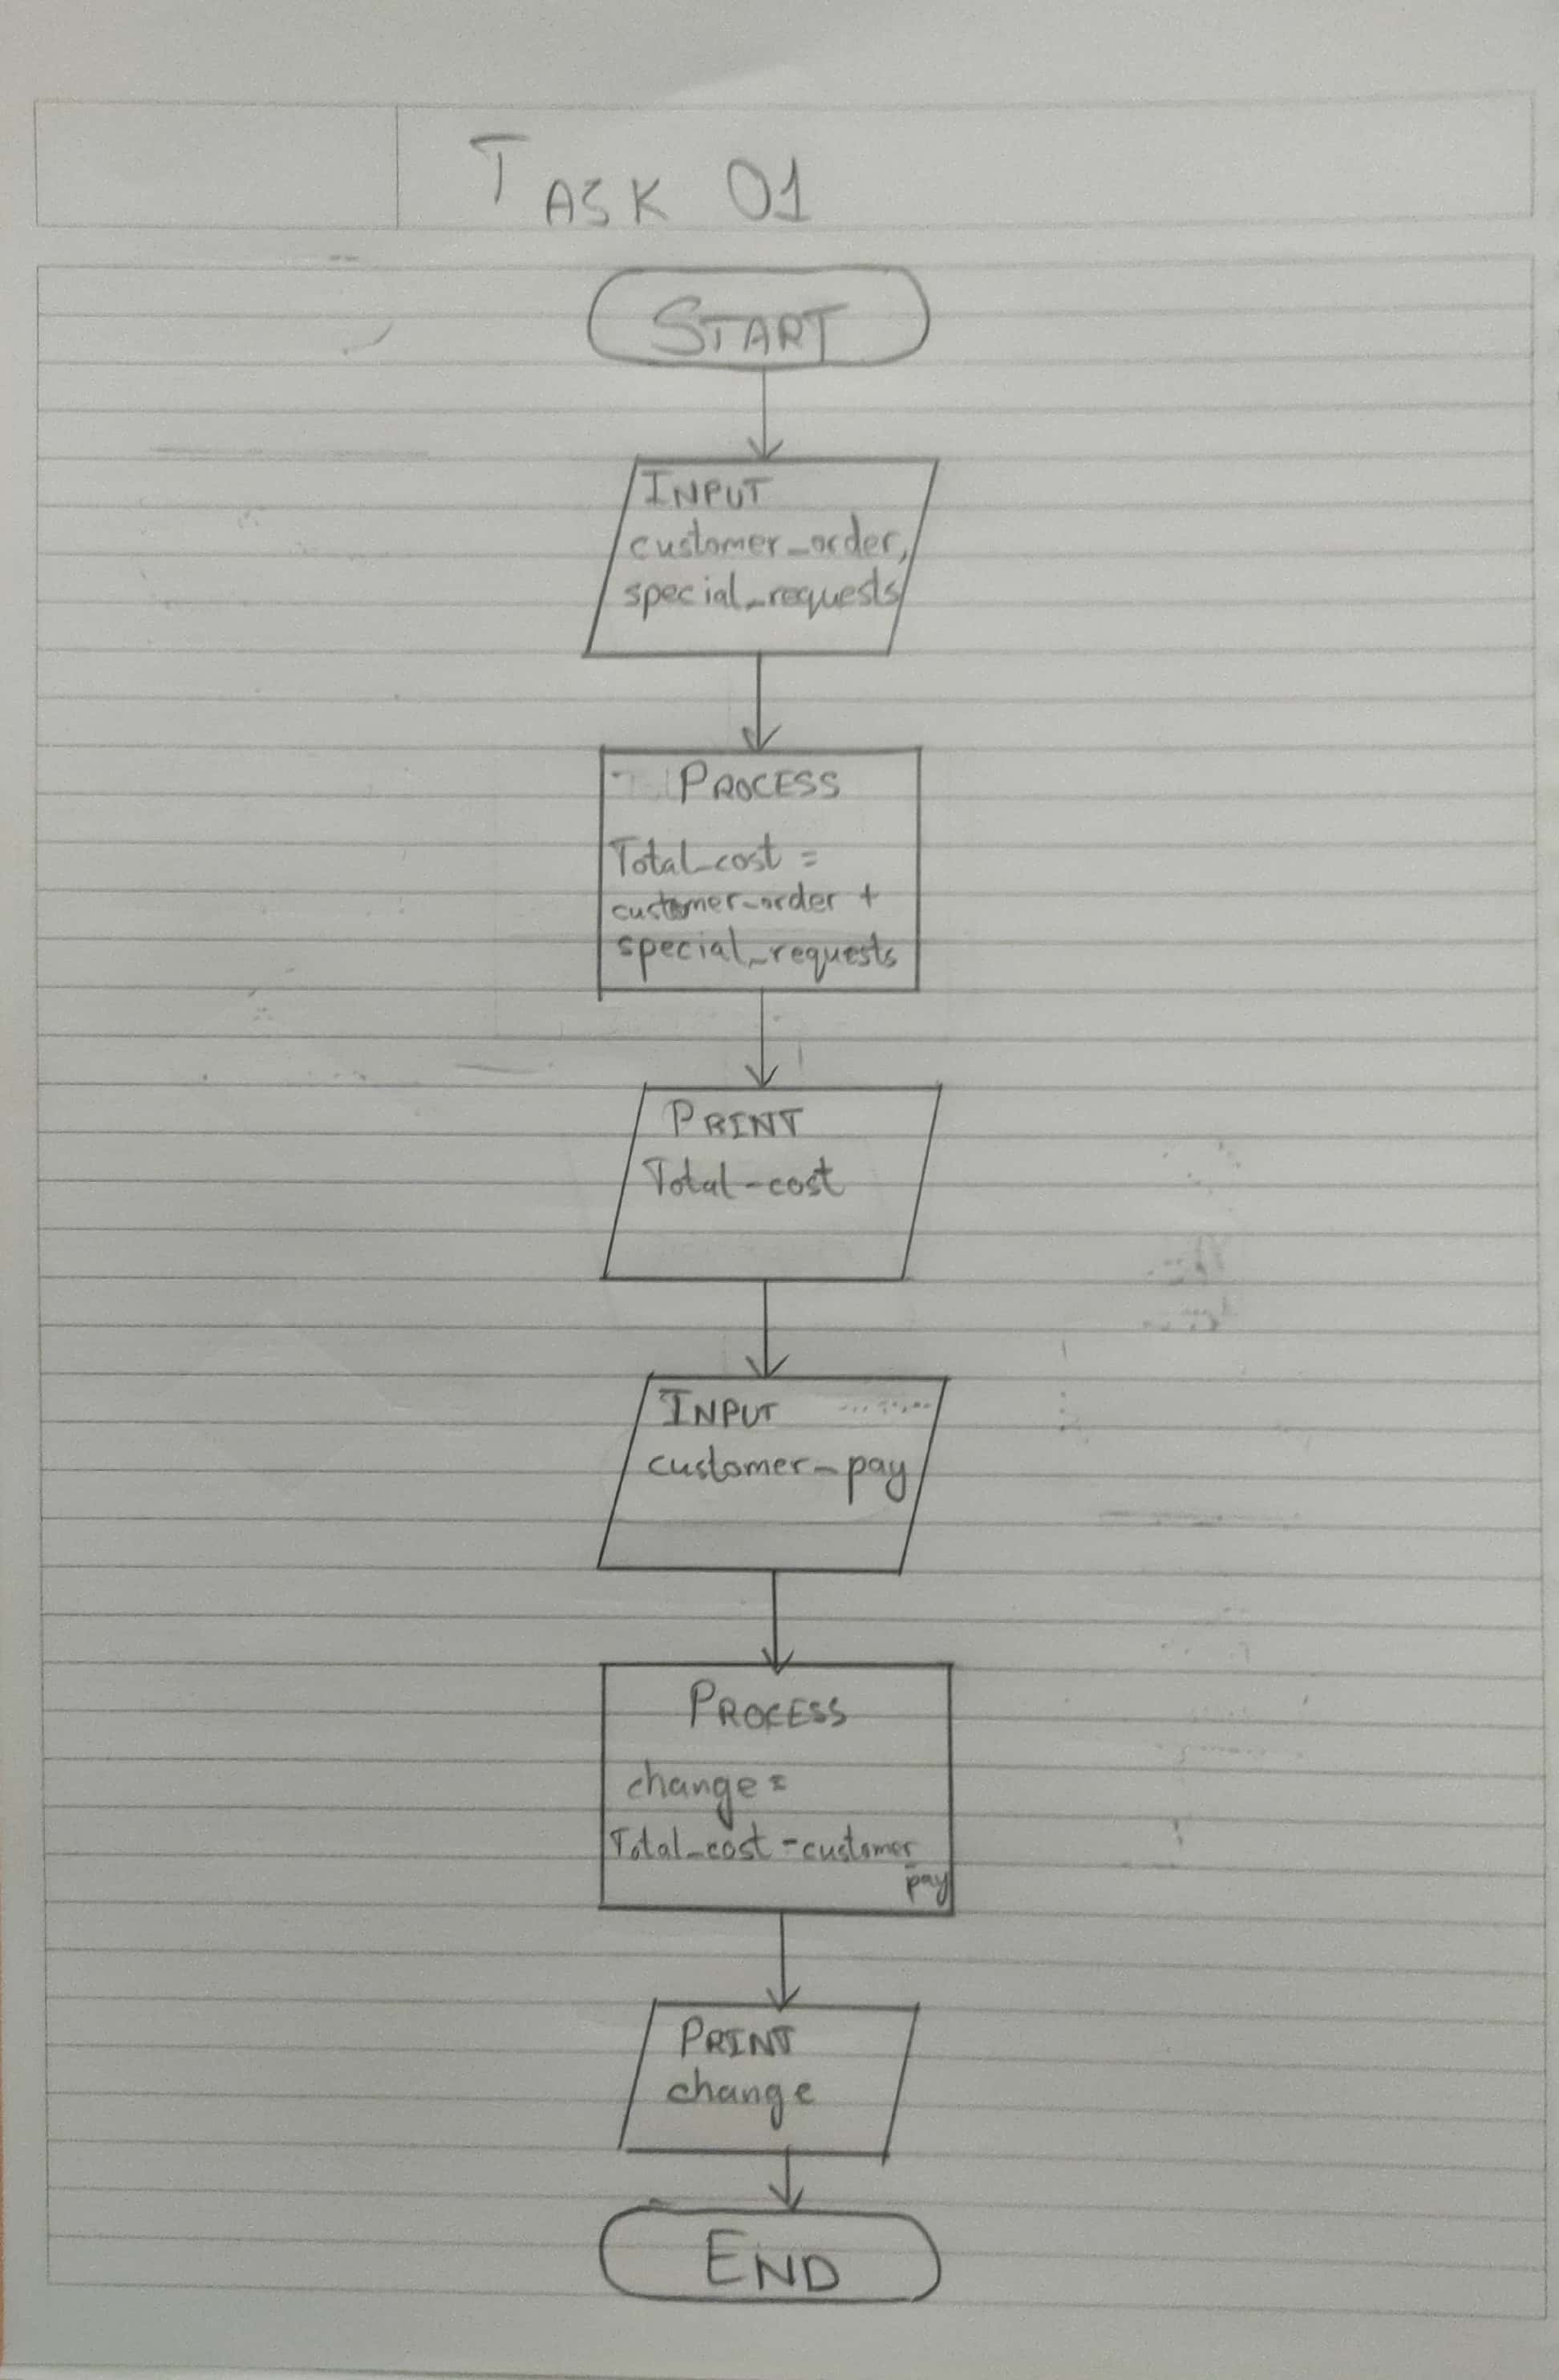 TASK 01
START
INPUT
customer_order,
special_requests
PROCESS
Total_cost =
customer_order +
special_requests
PRINT
Total_cost
INPUT
customer_pay
PROCESS
change =
Total_cost - customer_
pay
PRINT
change
END